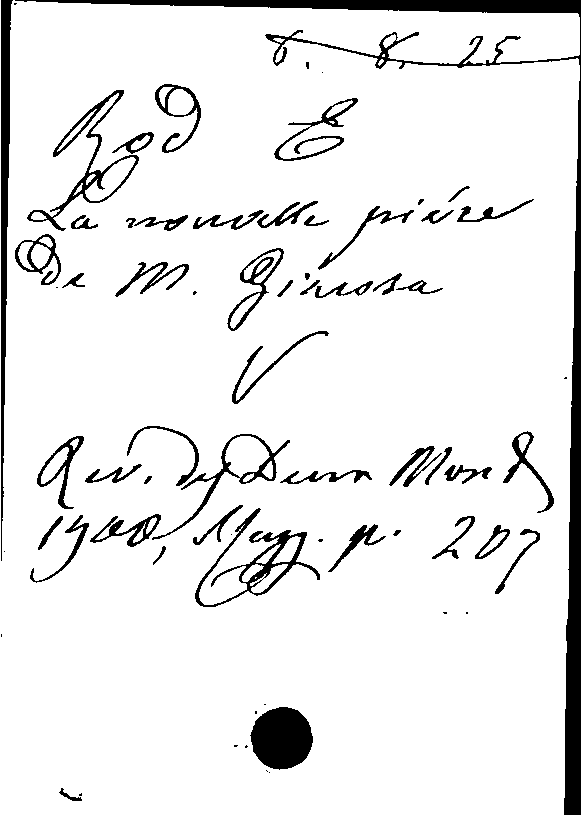 8. 8. 25
Rod E
La nouvelle pièce
de M. Giacosa
V
Rev. des Deux Mond
1900, Magg. p. 207